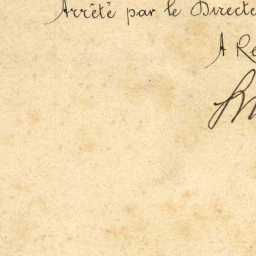 Arrêté par le Directe
A Re